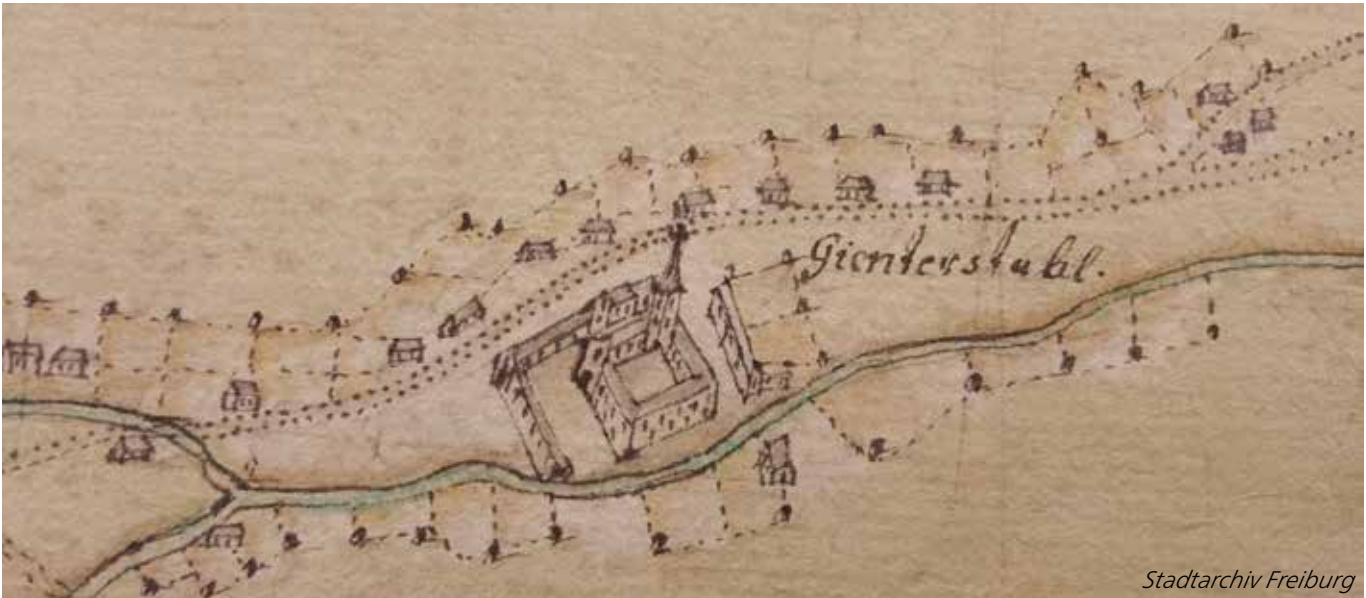 Gienterstahl.
Stadtarchiv Freiburg